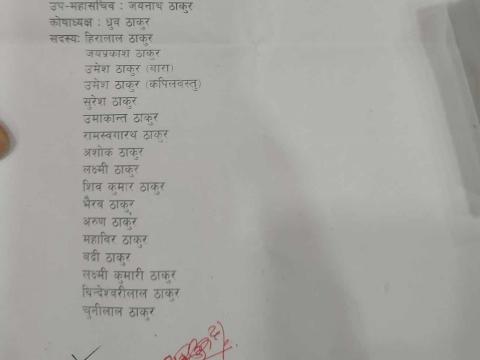 उप-महासचिव : जयनाथ ठाकुर
कोषाध्यक्ष : ध्रुव ठाकुर
सदस्य: हिरालाल ठाकुर
जयप्रकाश ठाकुर
उमेश ठाकुर (बारा)
उमेश ठाकुर (कपिलवस्तु)
सुरेश ठाकुर
उमाकान्त ठाकुर
रामस्वगारथ ठाकुर
अशोक ठाकुर
लक्ष्मी ठाकुर
शिव कुमार ठाकुर
भैरब ठाकुर
अरुण ठाकुर
महाविर ठाकुर
बद्री ठाकुर
लक्ष्मी कुमारी ठाकुर
विन्देश्वरीलाल ठाकुर
चुनीलाल ठाकुर